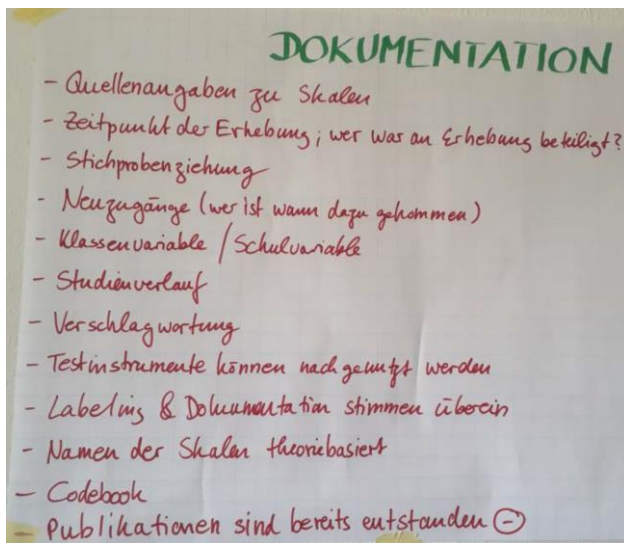 DOKUMENTATION
- Quellenangaben zu Skalen
- Zeitpunkt der Erhebung; wer war an Erhebung beteiligt?
- Stichprobenziehung
- Neuzugänge (wer ist wann dazu gekommen)
- Klassenvariable / Schulvariable
- Studienverlauf
- Verschlagwortung
- Testinstrumente können nachgenutzt werden
- Labeling & Dokumentation stimmen überein
- Namen der Skalen theoriebasiert
- Codebook
- Publikationen sind bereits entstanden ⊖